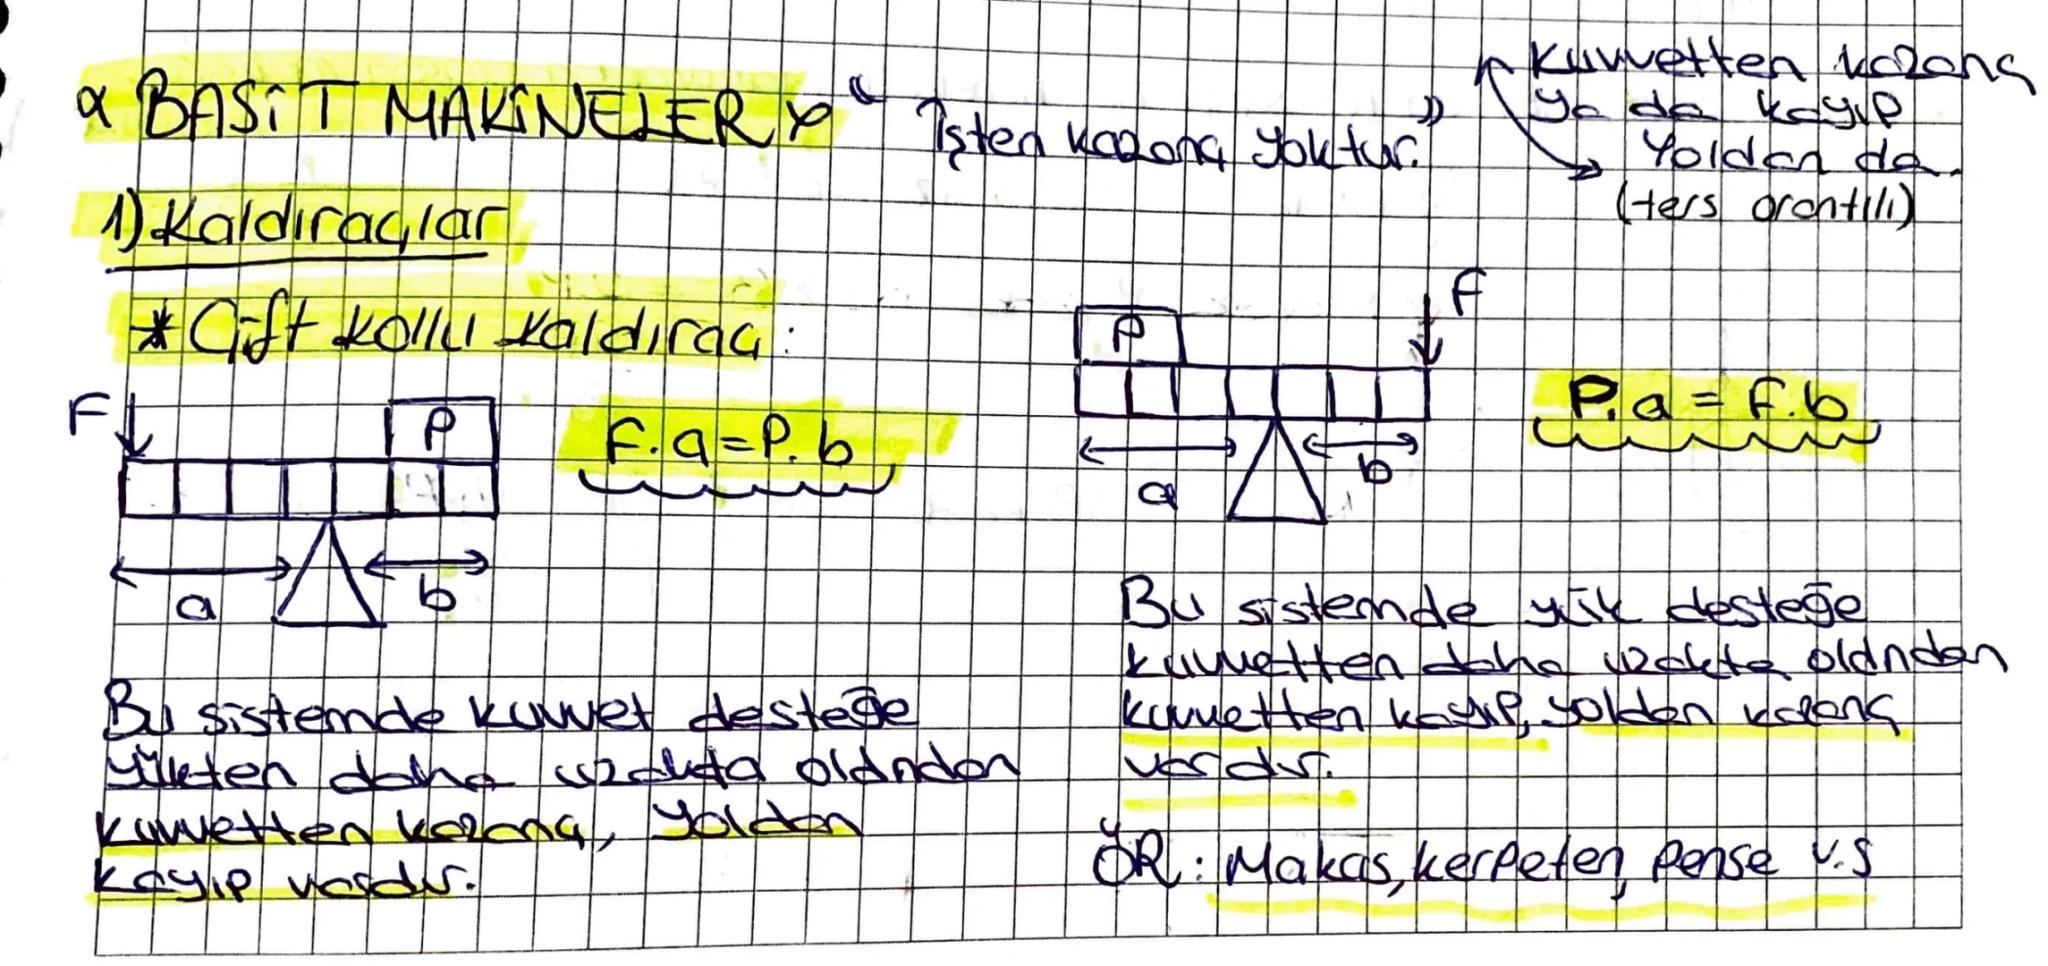 BASİT MAKİNELER
" İşten kazanç yoktur."
Kuvvetten kazanç
ya da kayıp
Yoldan da
(ters orantılı)
1) Kaldıraçlar
* Çift kollu kaldıraç:
F
P
F.a=P.b
a
b
Bu sistemde kuvvet desteğe
yükten daha uzakta oldndan
kuvvetten kazanç, yoldan
kayıp vardır.
F
P
P.a = F.b
a
b
Bu sistemde yük desteğe
kuvvetten daha uzakta oldndan
kuvvetten kayıp, yoldan kazanç
vardır.
ÖR: Makas, kerpeten, pense v.s